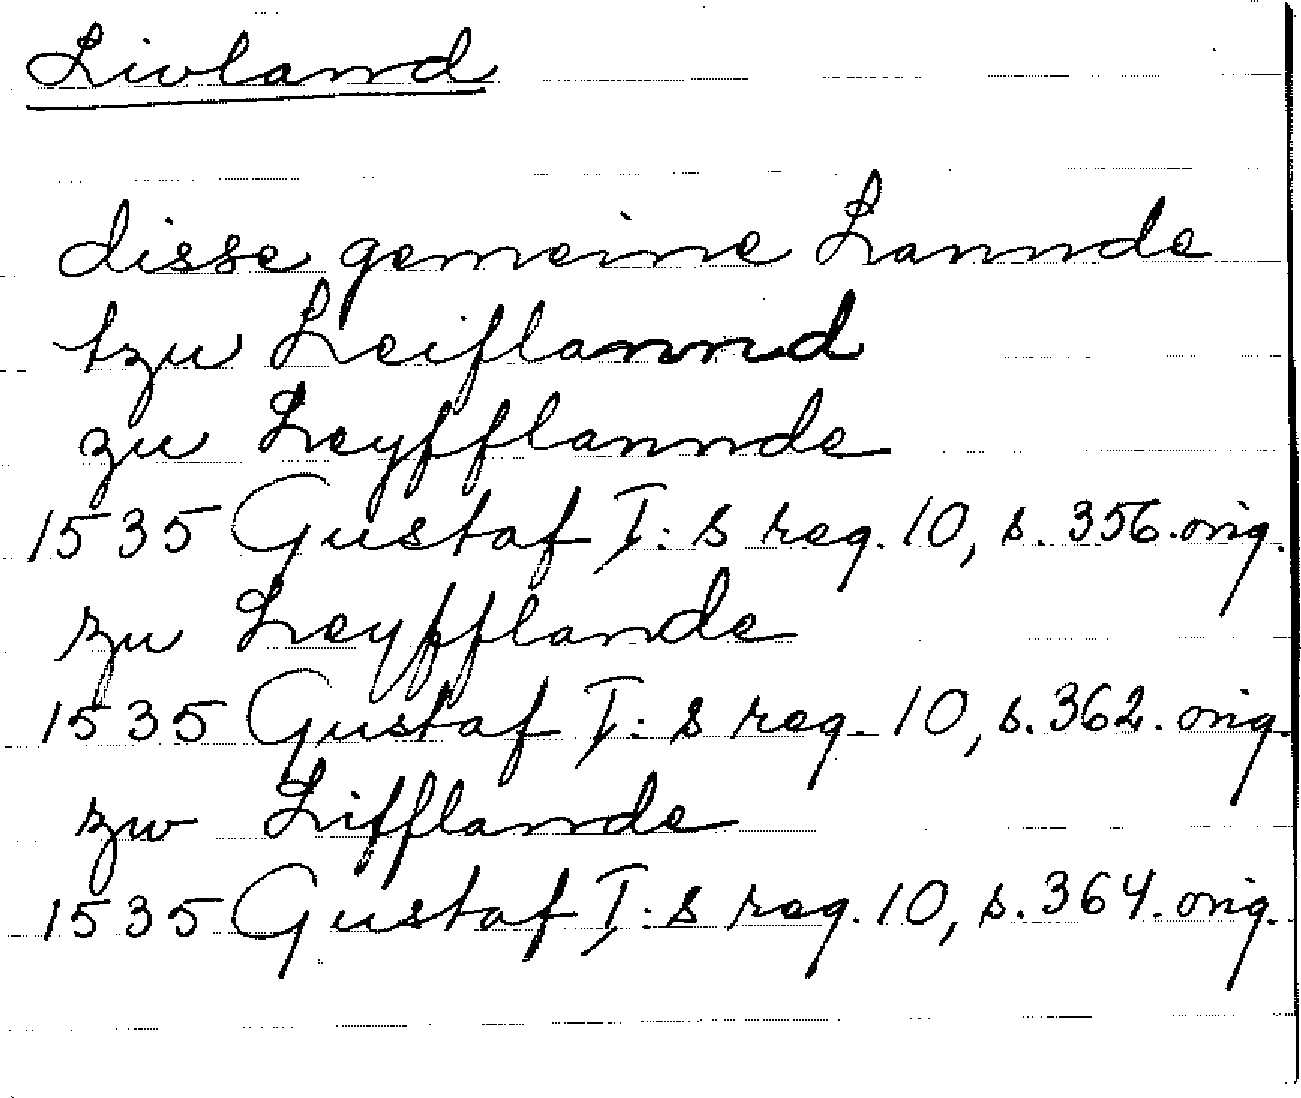 Livland
disse gemeine Lannde
tzu Leiflannd
zu Leyfflannde
1535 Gustaf I:s reg. 10, s. 356. orig.
zu Leyfflande
1535 Gustaf I:s reg. 10, s. 362. orig.
zw Lifflande
1535 Gustaf I:s reg. 10, s. 364. orig.